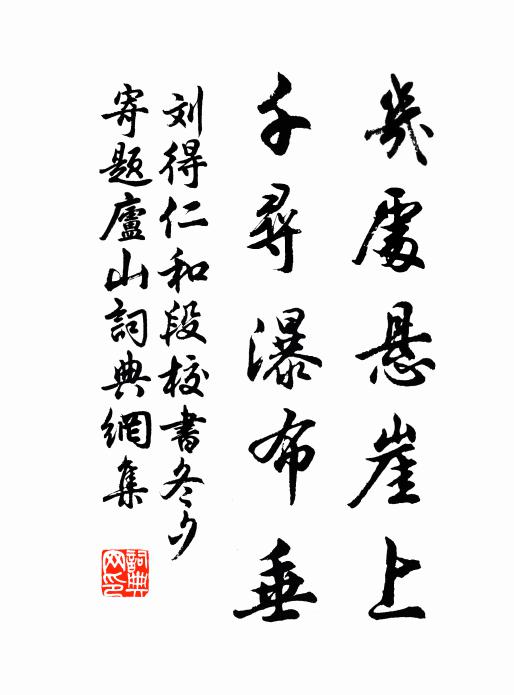 幾處悬崖上
千尋瀑布垂
刘得仁和段校書冬夕
寄题廬山詞典網集
詞典网印